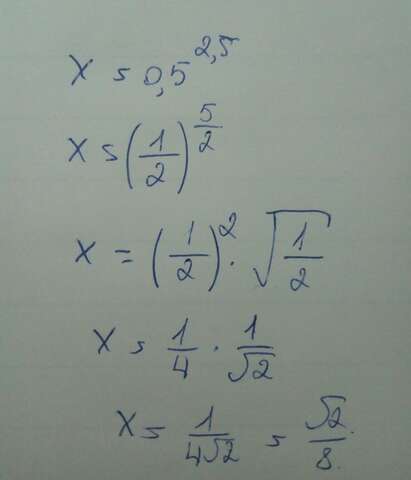 x = 0,5^{2,5}
x = (1/2)^{5/2}
x = (1/2)^2 · √(1/2)
x = 1/4 · 1/√2
x = 1/(4√2) = √2/8.